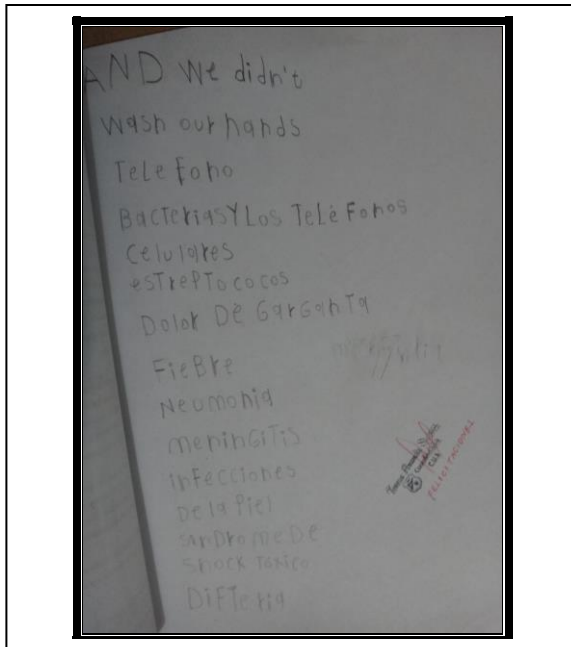 AND We didn't
Wash our hands
TeleFono
BacteriasY Los TeléFonos
Celulares
esTrePTococos
Dolor De GarGanTa
FieBre
Neumonia
meninGiTis
inFecciones
De la Piel
sanDrome De
shock Toxico
DiFTeria
FELICITACIONES